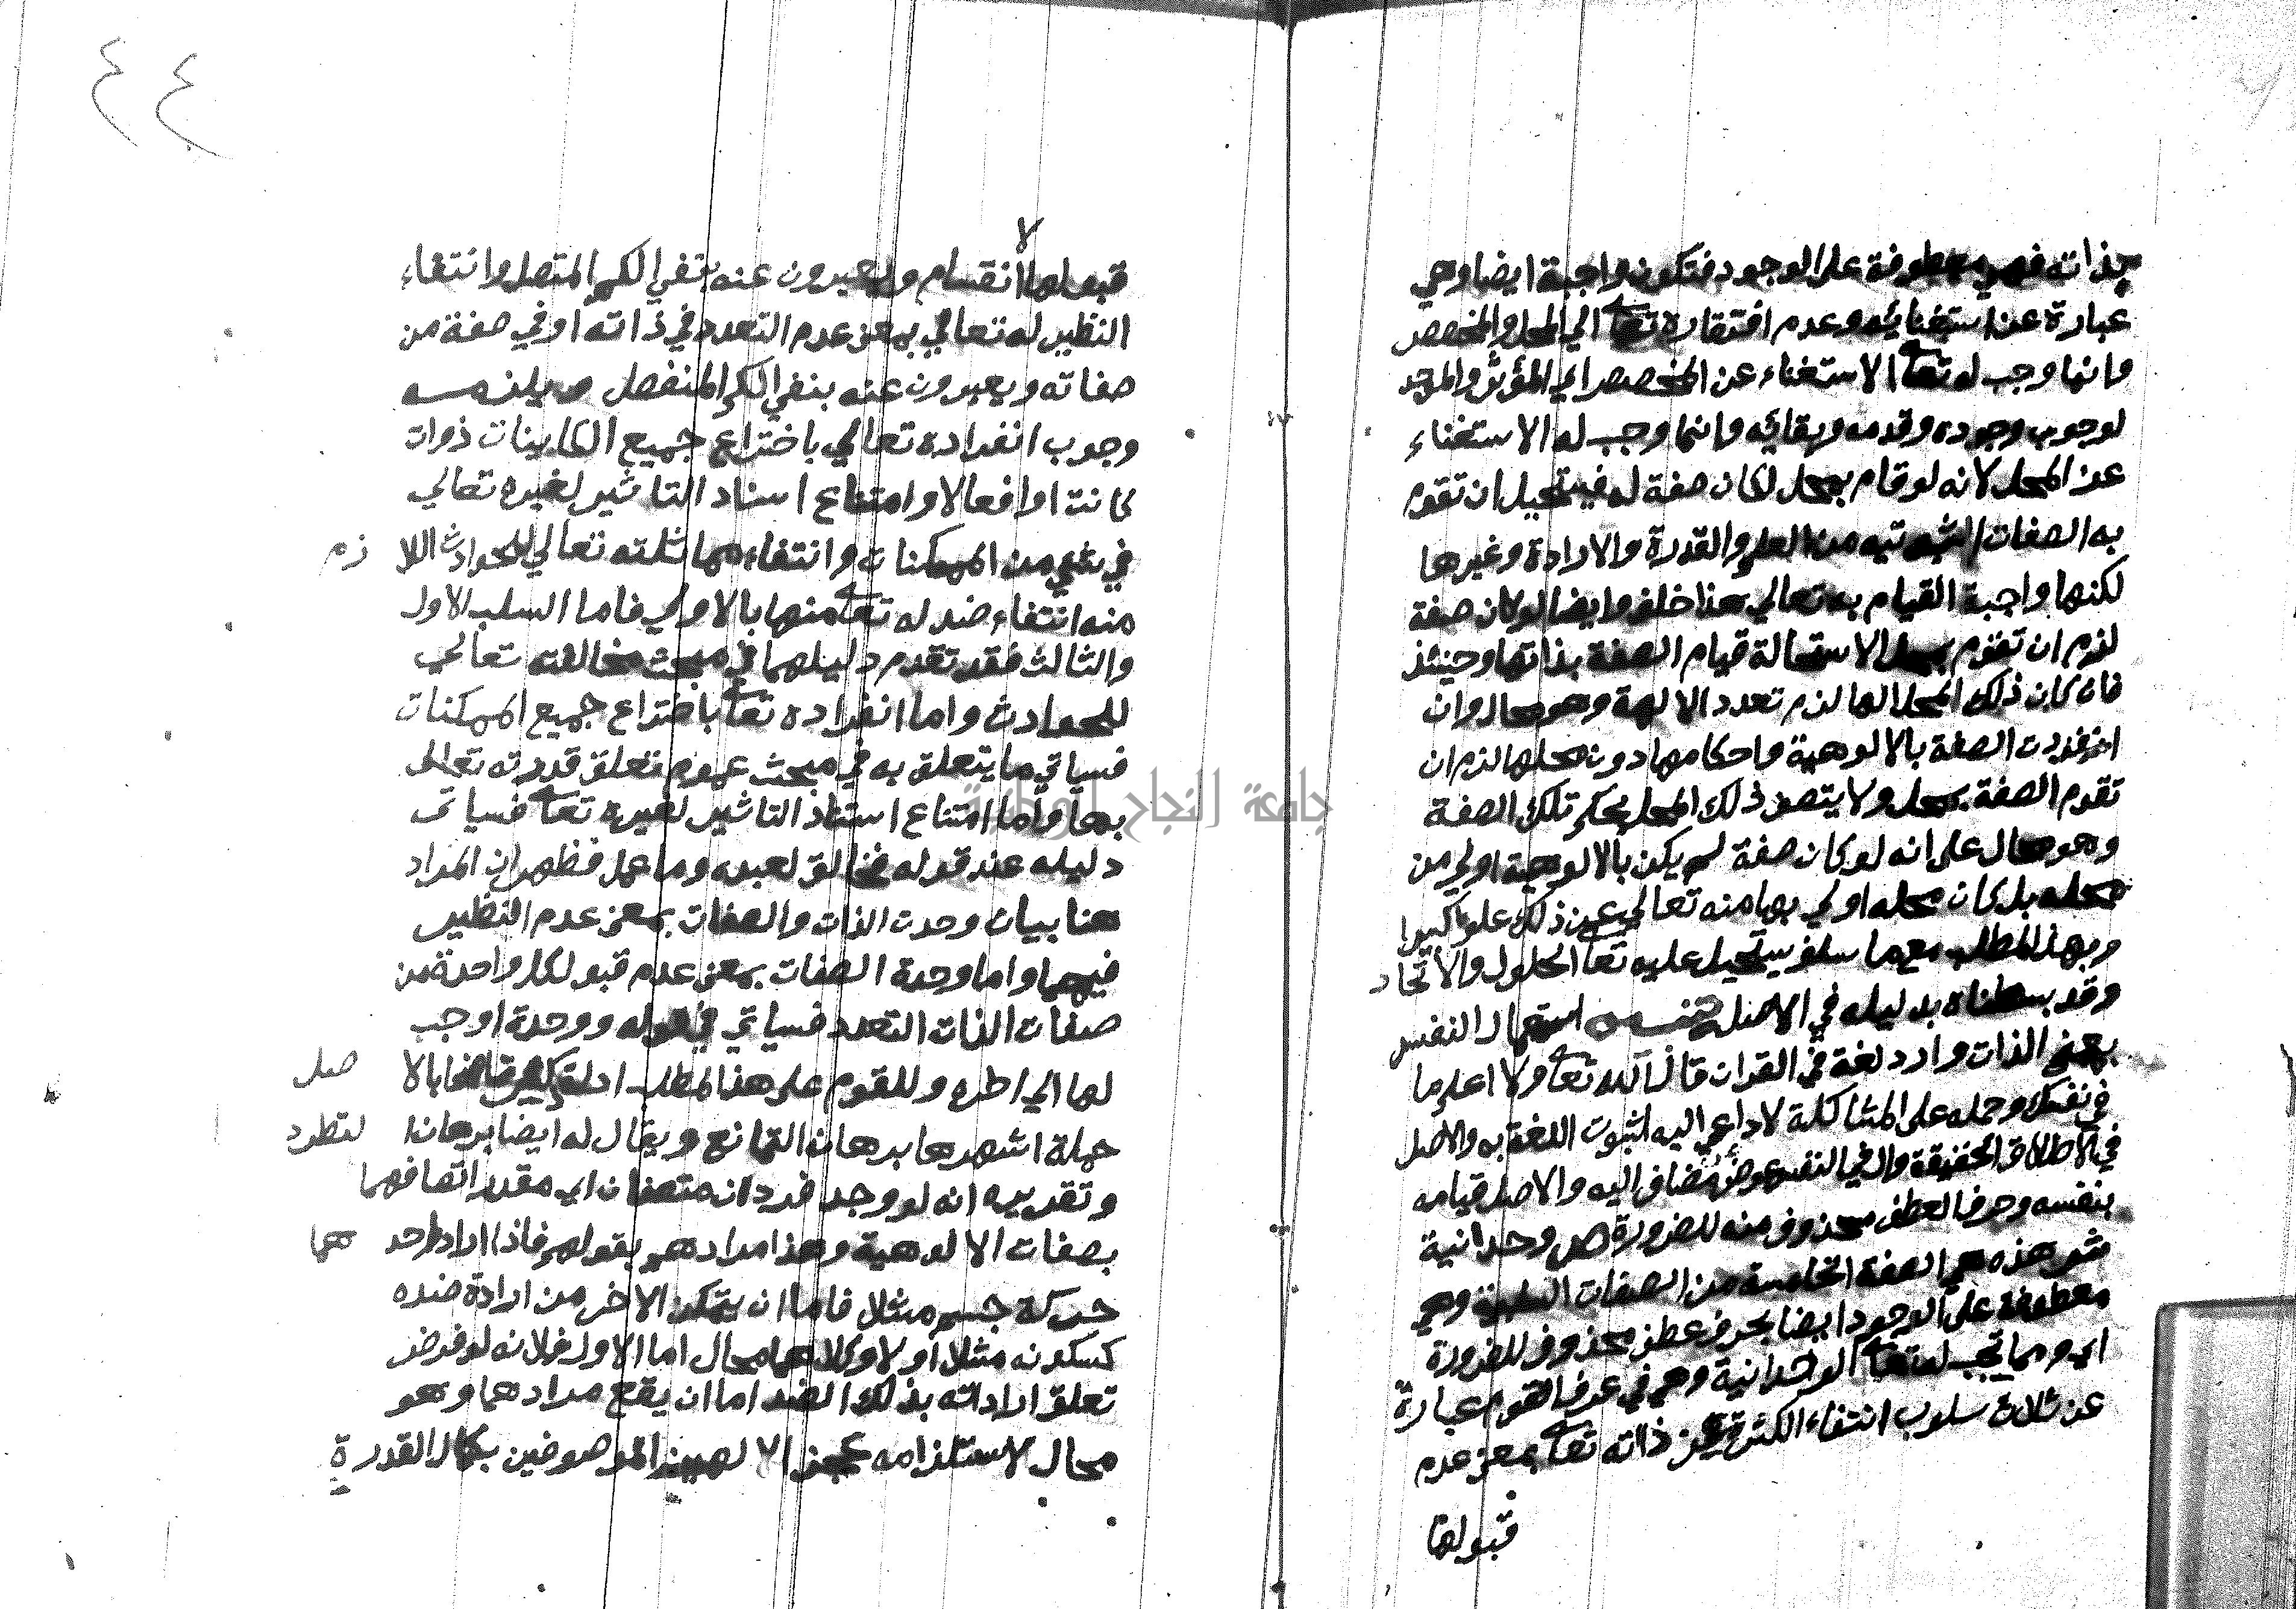 بذاته فهي معطوفة على الوجود فتكون واجبة ايضا وهي
عبارة عن استغنائه وعدم افتقاره تعا الي المحل والمخصص
وانما وجب له تعا الاستغناء عن المخصص اي المؤثر والموجد
لوجوب وجوده وقدمه وبقائه وانما وجب له الاستغناء
عن المحل لانه لو قام بمحل لكان صفة له فيستحيل ان تقوم
به الصفات الثبوتيه من العلم والقدرة والارادة وغيرها
لكنها واجبة القيام به تعالي هذا خلف وايضا لو كان صفة
لزم ان تقوم بمحل لاستحالة قيام الصفة بذاتها وحينئذ
فان كان ذلك المحل الها لزم تعدد الالهة وهو محال وان
انفردت الصفة بالالوهية واحكامها دون محلها لزم ان
تقوم الصفة بمحل ولا يتصف ذلك المحل بحكم تلك الصفة
وهو محال على انه لو كان صفة لم يكن بالالوهية اولي من
محله بل كان محله اولي بها منه تعالي عن ذلك علوا كبيرا
وبهذا المطلب مع ما سلف يستحيل عليه تعا الحلول والاتحاد
وقد بسطناه بدليله في الاصل استعمال النفس
بمعني الذات وارد لغة في القران قال الله تعا ولا اعلم ما
في نفسك وحمله على المشاكلة لا داعي اليه لثبوت اللغة به والاصل
في الاطلاق الحقيقة وال في النفس عوض مضاف اليه والاصل قيامه
بنفسه وحرف العطف محذوف منه للضرورة ص وحدانية
ش هذه هي الصفة الخامسة من الصفات السلبية وهي
معطوفة على الوجود ايضا بحرف عطف محذوف للضرورة
اي ومما يجب له تعا الوحدانية وهي في عرف القوم عبارة
عن ثلاث سلوب انتفاء الكثرة عن ذاته تعا بمعنى عدم
قبولها
٤٤
لا
قبولها انقسام ويعبرون عنه بنفي الكم المتصل وانتفاء
النظير له تعالي بمعنى عدم التعدد في ذاته او في صفة من
صفاته ويعبرون عنه بنفي الكم المنفصل ويلزمه
وجوب انفراده تعالي باختراع جميع الكاينات ذوات
كانت او افعالا وامتناع اسناد التاثير لغيره تعالي
في شي من الممكنات وانتفاء مماثلته تعالي للحوادث اللازم
منه انتفاء ضد له تعا منها بالاولي فاما السلب الاول
والثالث فقد تقدم دليلهما في مبحث مخالفته تعالي
للحوادث واما انفراده تعا باختراع جميع الممكنات
فسياتي ما يتعلق به في مبحث عموم تعلق قدرته تعالى
بها واما امتناع استناد التاثير لغيره تعا فسياتي
دليله عند قوله فخالق لعبده وما عمل فظهر ان المراد
هنا بيان وحدت الذات والصفات بمعنى عدم النظير
فيهما واما وحدة الصفات بمعنى عدم قبول كل واحدة من
صفات الذات التعدد فسياتي في قوله ووحدة اوجب
لها الي اخره وللقوم على هذا المطلب ادلة كثيرة بالاصل
جملة اشهرها برهان التمانع ويقال له ايضا برهان التطرد
وتقديره انه لو وجد فردان متصفان اي مقدر اتصافهما
بصفات الالوهية وهذا مرادهم بقولهم فاذا اراد احدهما
حركة جسم مثلا فاما ان يتمكن الاخر من ارادة ضده
كسكونه مثلا او لا وكلاهما محال اما الاول فلانه لو فرض
تعلق اراداته بذلك الضد اما ان يقع مرادهما وهو
محال لاستلزامه عجز الالهين الموصوفين بكمال القدرة
جامعة النجاح الوطنية